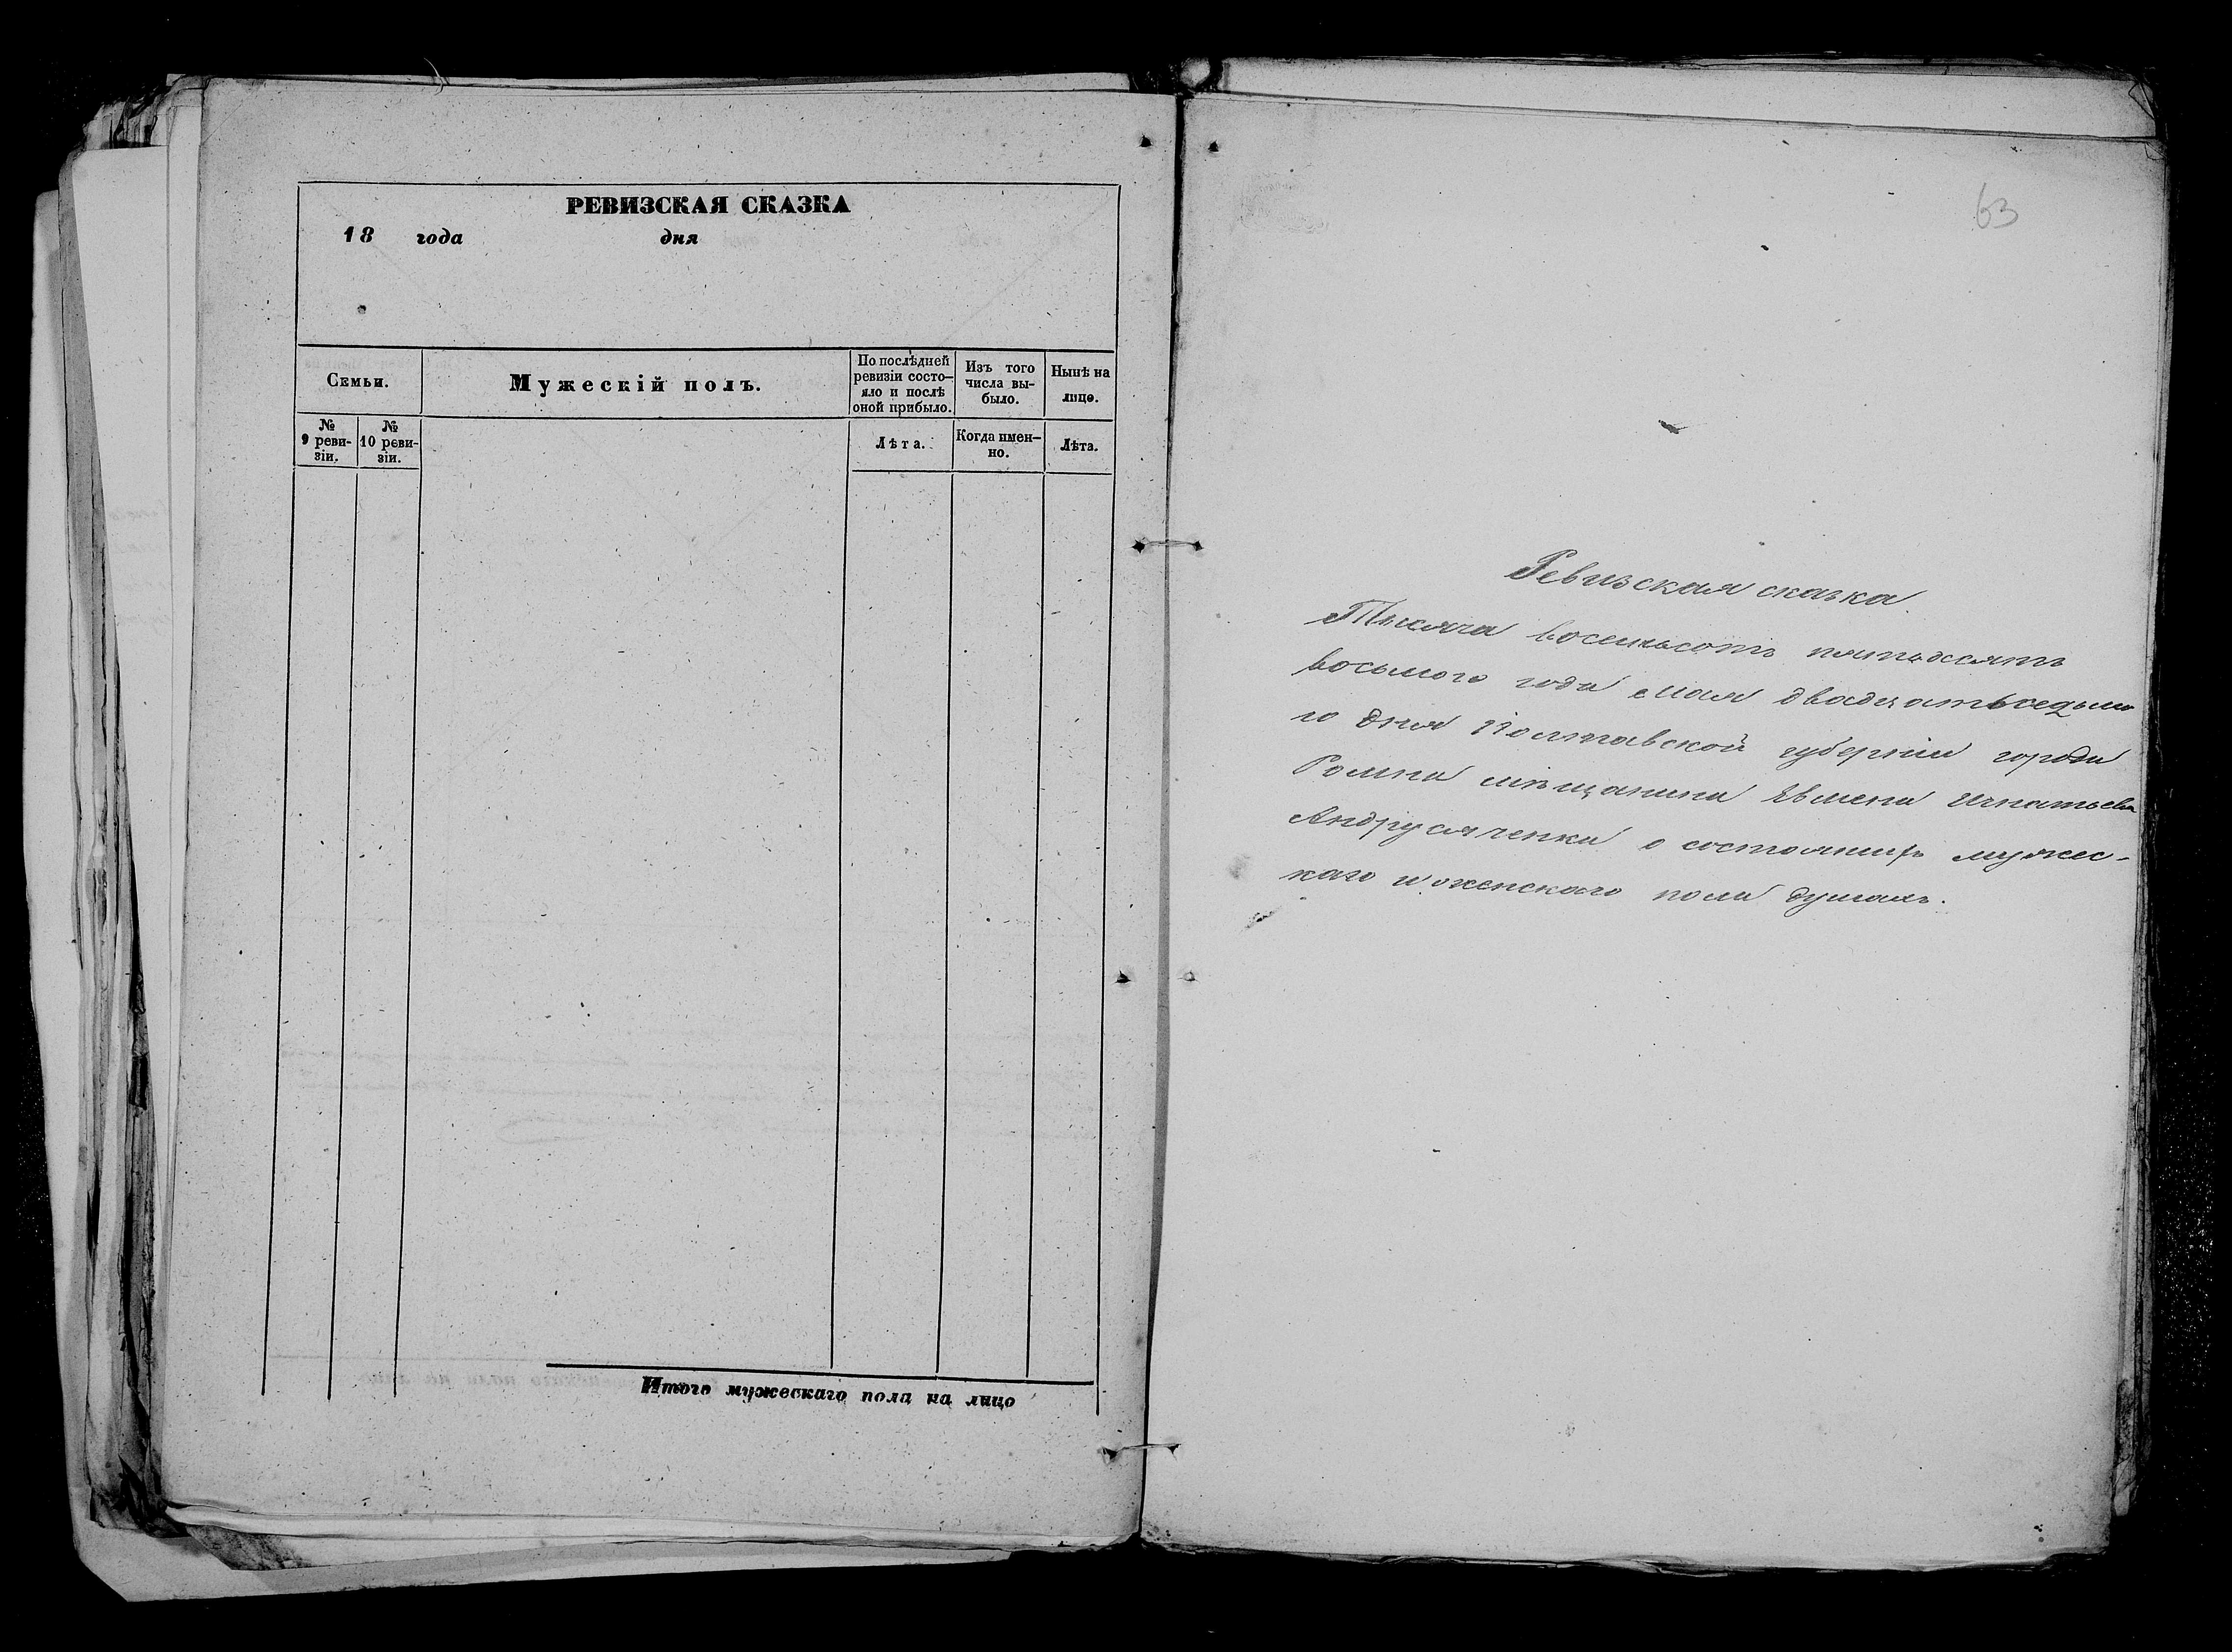 РЕВИЗСКАЯ СКАЗКА
18 года дня
Семьи.
Мужескій полъ.
По послѣдней
ревизіи состо-
яло и послѣ
оной прибыло.
Изъ того
числа вы-
было.
Нынѣ на
лицо.
№
9 реви-
зіи.
№
10 реви-
зіи.
Лѣта.
Когда имен-
но.
Лѣта.
Итого мужескаго пола на лицо
63
Ревизская сказка.
Тысяча восемьсотъ пятьдесятъ
восьмого года мая двадцатьседьмо
го дня Полтавской губерніи города
Ромна мѣщанина Евмена Игнатьева
Андрусяченка о состоящихъ мужес-
каго и женскаго пола душахъ.